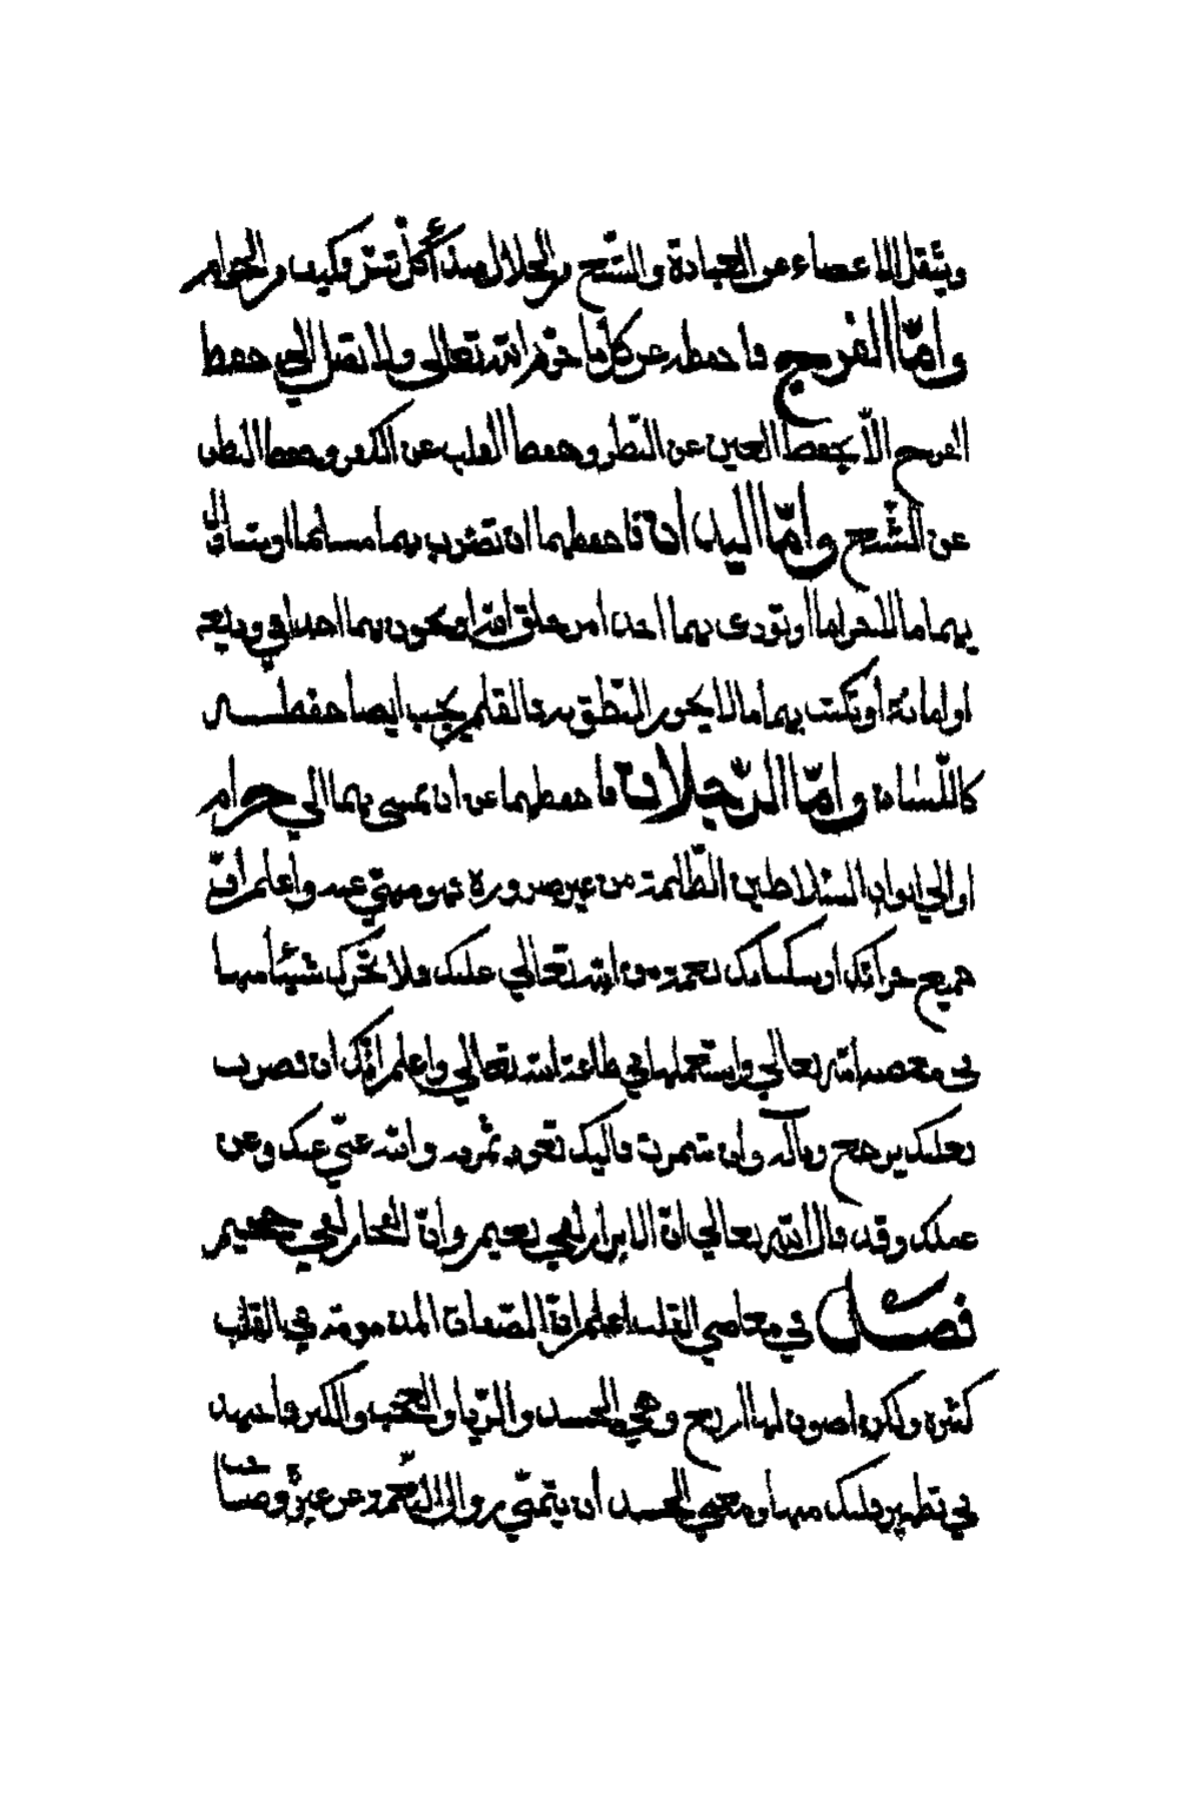 ويثقل الاعضاء عن العبادة والشبع من الحلال مبدأ كل شر وكيف من الحرام
وامّا الفرج فاحفظه عن كل ما حرّم الله تعالى ولا تصل الي حفظ
الفرج الاّ بحفظ العين عن النظر وحفظ القلب عن الفكر وحفظ البطن
عن الشبع وامّا اليدان فاحفظهما ان تضرب بهما مسلما او تتناول
بهما مالا حراما او توذى بهما احدا من خلق الله او تخون بهما احدا في وديعة
او امانة او تكتب بهما ما لا يجوز النطق به فان القلم يجب ايضا حفظه
كاللسان وامّا الرّجلان فاحفظهما عن ان تمشي بهما الي حرام
او الي ابواب السلاطين الظّلمة من غير ضرورة فهو منهيّ عنه واعلم انّ
جميع حركاتك وسكناتك نعمة من الله تعالي عليك فلا تحرّك شيئا منها
في معصية الله تعالي واستعملها في طاعة الله تعالي واعلم انّك ان قصرت
فعليك يرجع وباله وان شمرت فاليك تعود ثمرته والله غنيّ عنك وعن
عملك وقد قال الله تعالي انّ الابرار لفي نعيم وانّ الفجار لفي جحيم
فصل في معاصي القلب اعلم انّ الصّفات المذمومة في القلب
كثيرة ولكن اصون لها اربع وهي الحسد والرّيا والعجب والكبر فاجتهد
في تطهير قلبك منها ومعني الحسد ان يتمنّي زوال النّعمة عن غيره